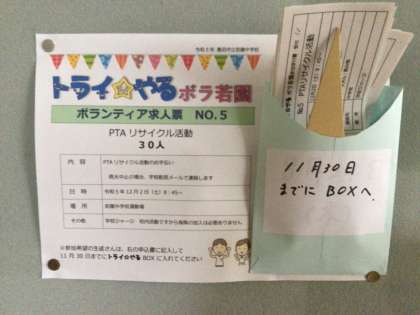 令和5年 豊田市立若園中学校
トライ☆やる ボラ若園
ボランティア求人票 NO.5
PTAリサイクル活動
30人
内容 PTAリサイクル活動のお手伝い
雨天中止の場合、学校配信メールで連絡します
日時 令和5年12月2日(土)8:45~
場所 若園中学校運動場
その他 学校ジャージ 校内活動ですから保険の加入は必要ありません
※参加希望の生徒さんは、右の申込書に記入して
11月30日までにトライ☆やるBOXに入れてください
No.5 PTAリサイクル活動
11月30日
までに BOXへ